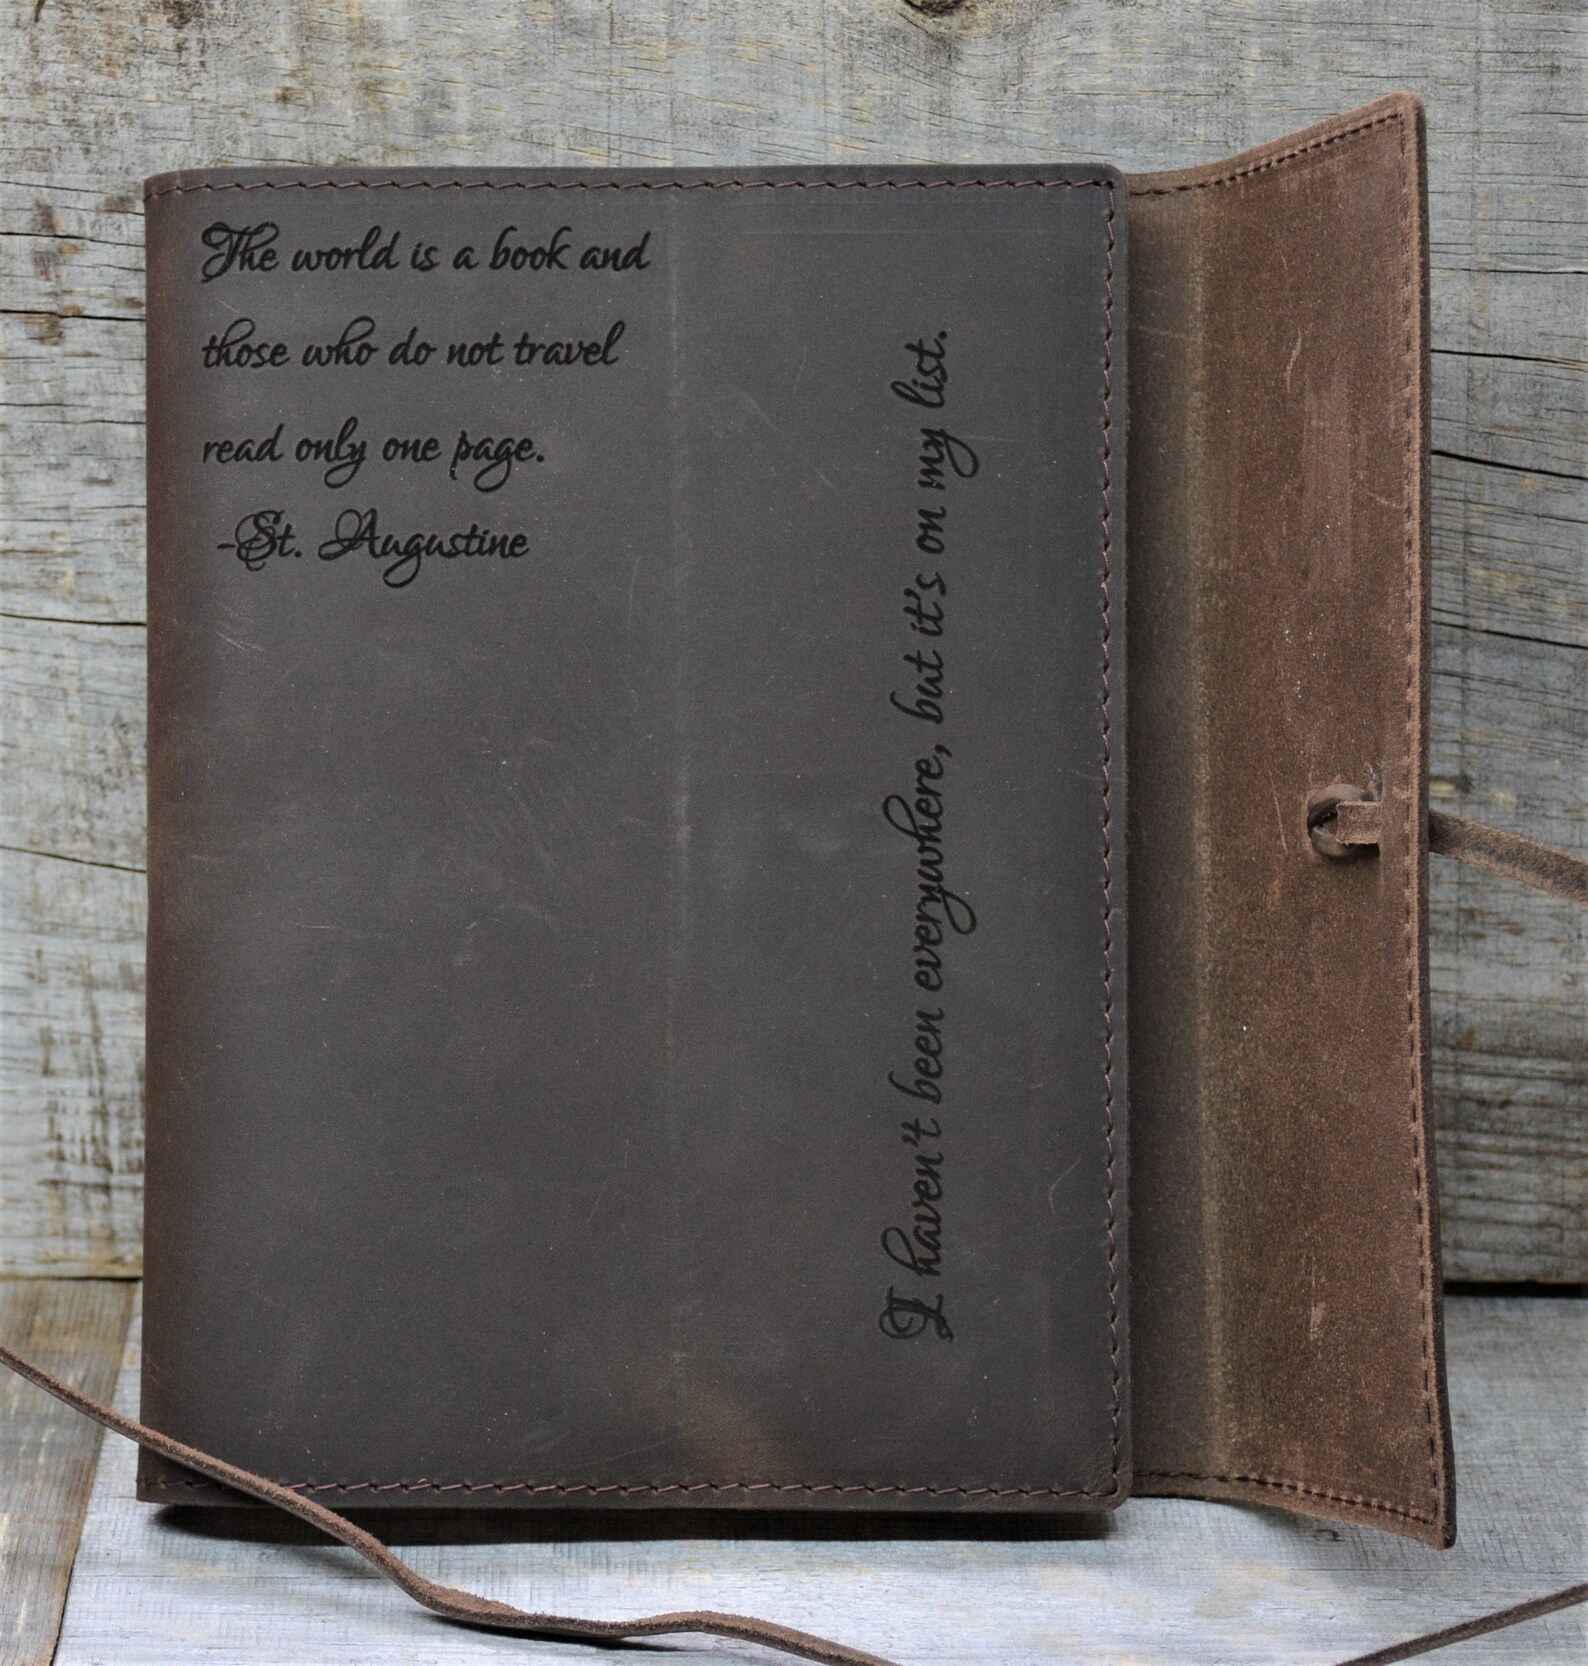 The world is a book and
those who do not travel
read only one page.
-St. Augustine
I haven't been everywhere, but it's on my list.